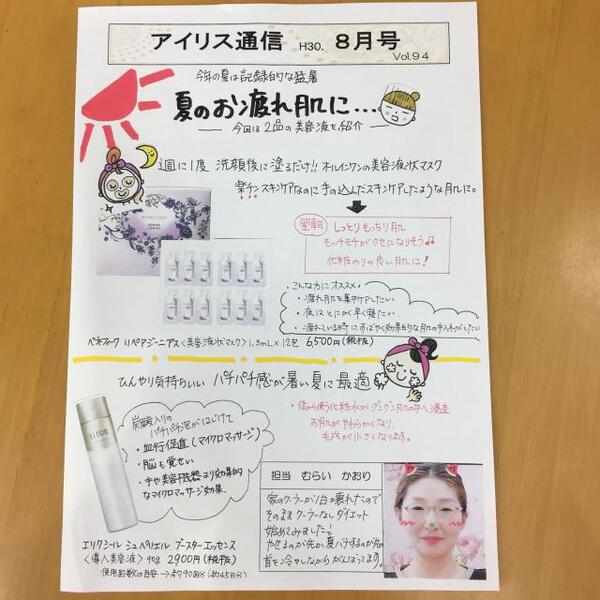 アイリス通信 H30. 8月号
Vol.94
今年の夏は記録的な猛暑
夏のお疲れ肌に…
今回は2品の美容液を紹介
週に1度 洗顔後に塗るだけ!! オールインワンの美容液状マスク
楽チンスキンケアなのに手の込んだスキンケアしたような肌に。
翌朝 しっとりもっちり肌
モッチモチがクセになりそう♫
化粧のりの良い肌に!
・こんな方にオススメ
・疲れ肌を集中ケアしたい
・夜はとにかく早く寝たい
・疲れている時にすばやく効果的な肌の手入れがしたい
ベネフィーク リペアジーニアス〈美容液状マスク〉1.8mL×12包 6500円(税抜)
ひんやり気持ちいい パチパチ感が暑い夏に最適
炭酸入りの
パチパチ泡がはじけて
・血行促進(マイクロマッサージ)
・脳も覚せい
・手や美容機器より効果的
なマイクロマッサージ効果
ELIXIR
・後から使う化粧水がグングン肌の中へ浸透
お肌がやわらかくなり、
毛穴が小さくなります。
エリクシール シュペリエル ブースターエッセンス
〈導入美容液〉 90g 2900円(税抜)
使用回数の目安→約90回分(約45日分)
担当 むらい かおり
家のクーラーが1台壊れたので
そのままクーラーなしダイエット
始めてみました!
やせるのが先か夏バテするのが先か
首を冷やしながらがんばってます。